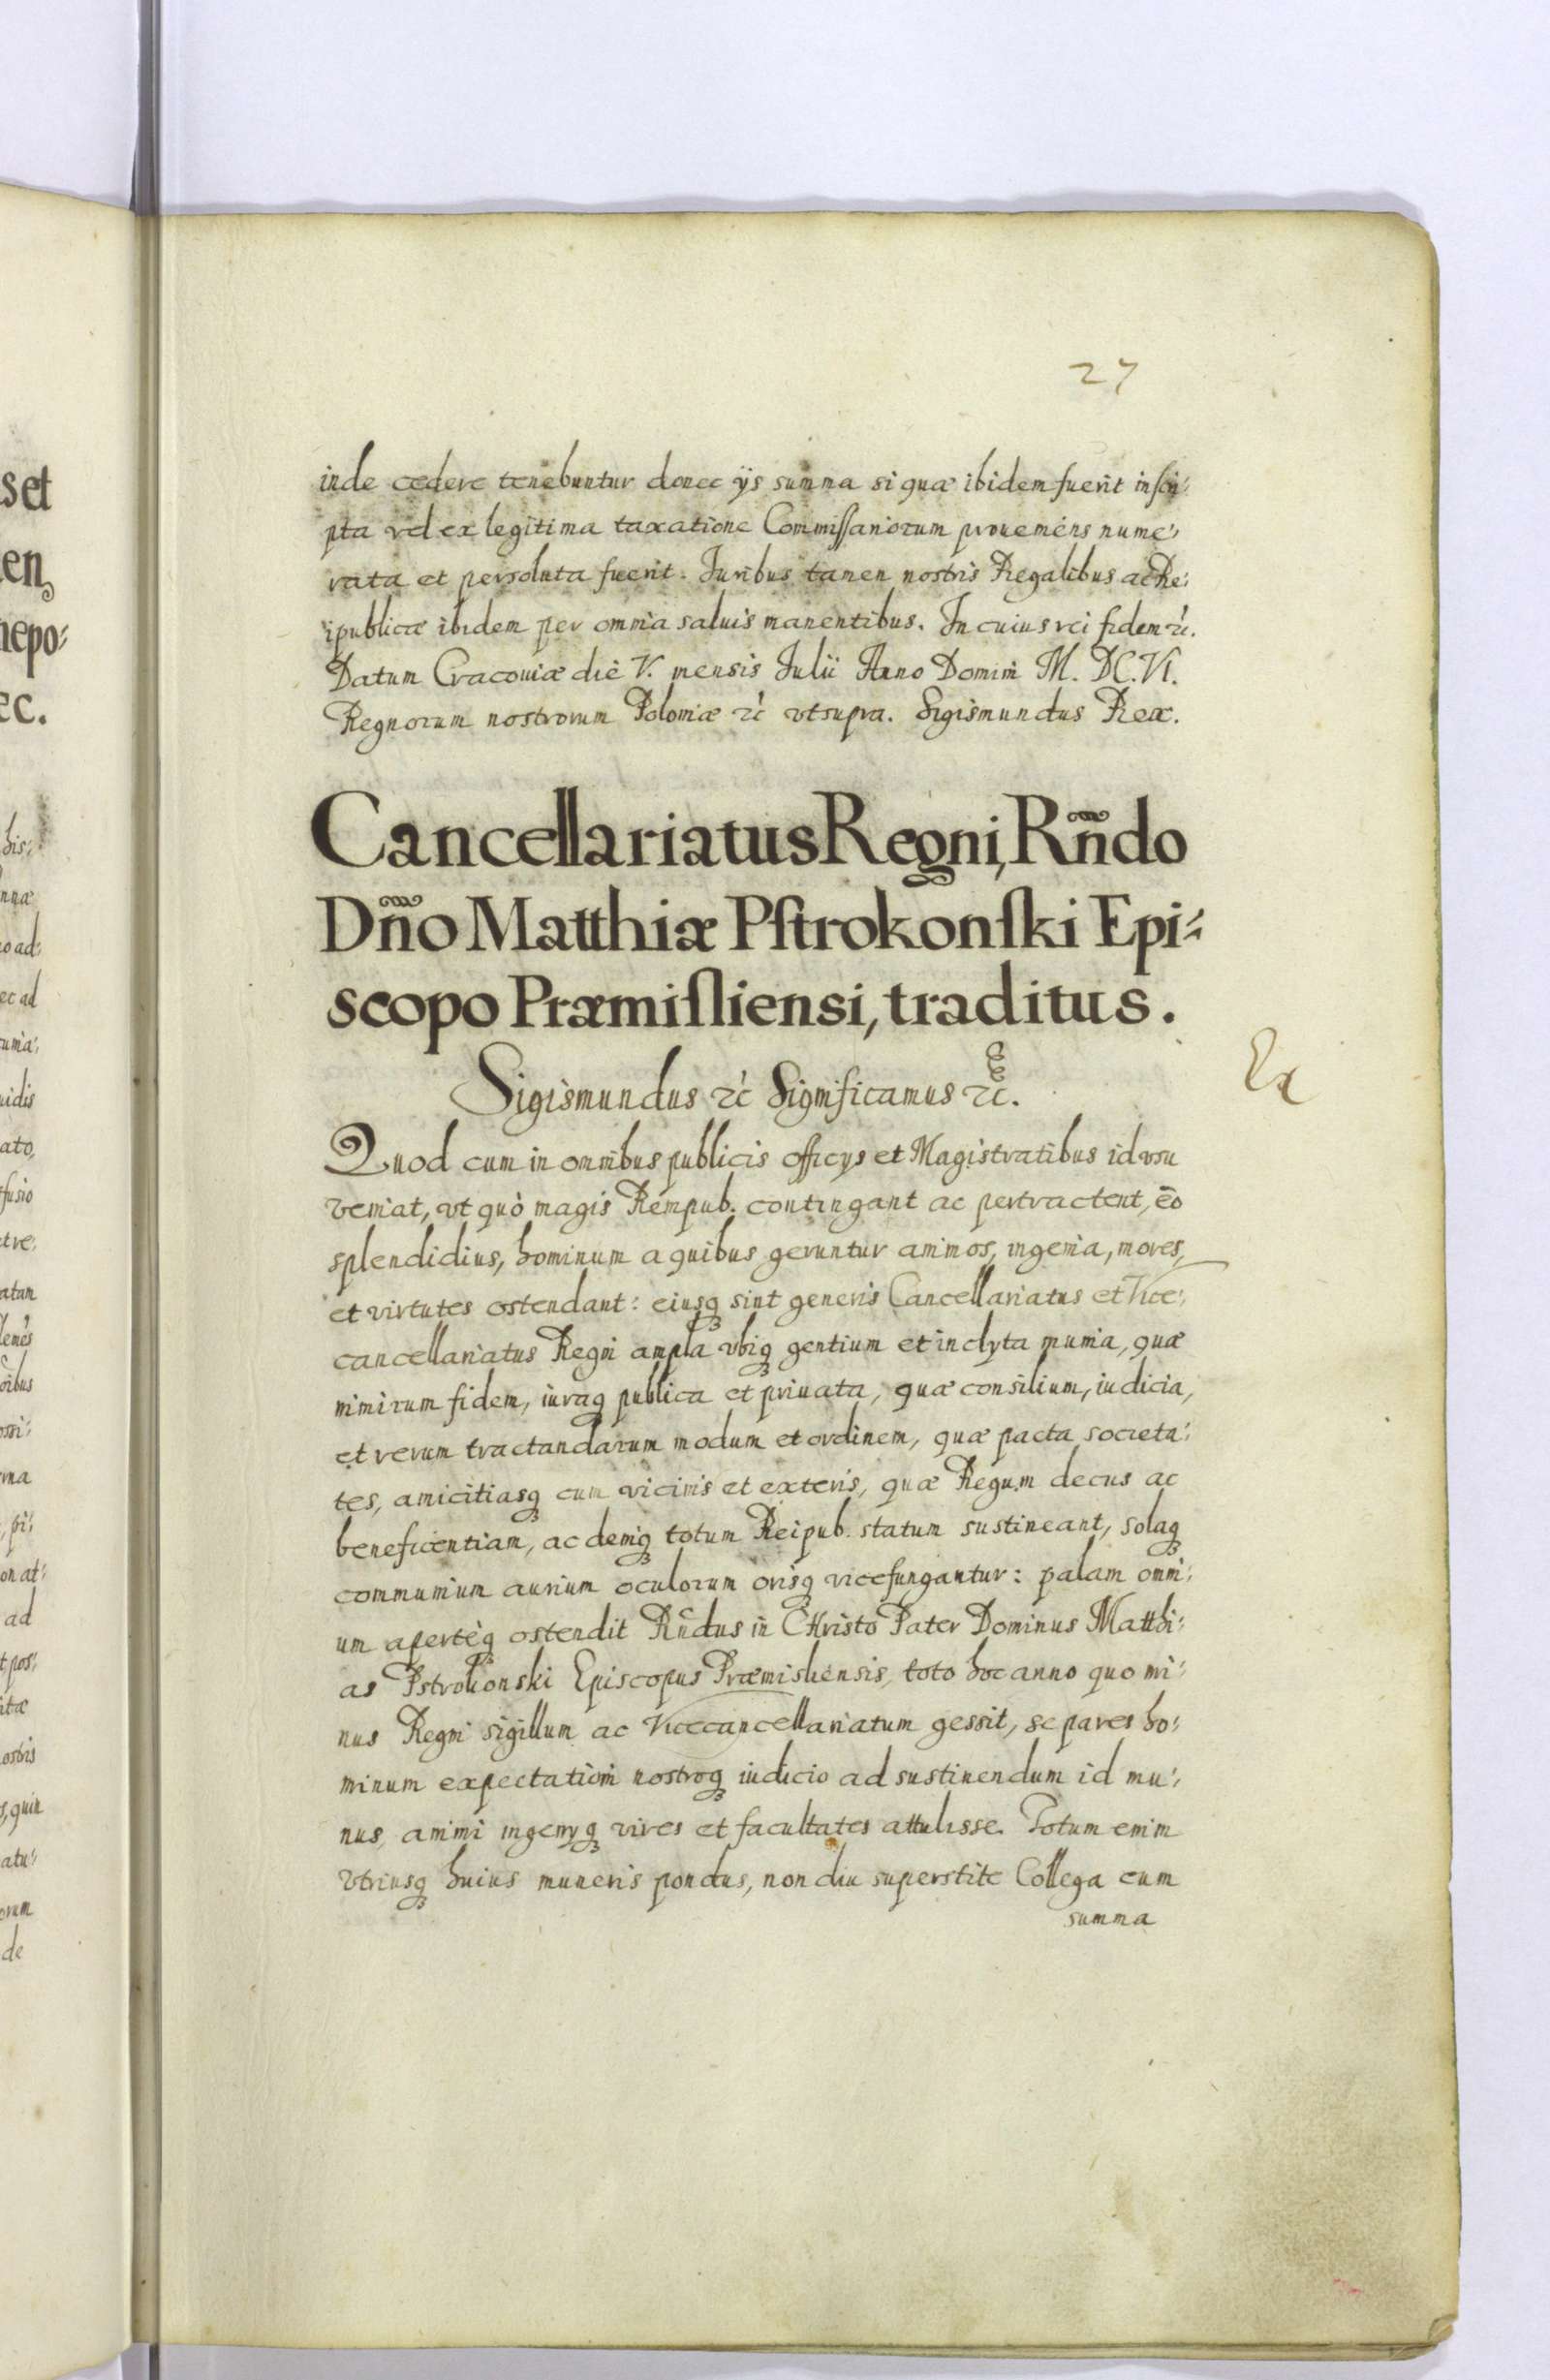 27
inde cedere tenebuntur donec ijs summa si quæ ibidem fuerit inscri-
pta vel ex legitima taxatione Commissariorum proueniens nume-
rata et persoluta fuerit. Iuribus tamen nostris Regalibus ac Re-
ipublicæ ibidem per omnia saluis manentibus. In cuius rei fidem &c.
Datum Cracouiæ die V. mensis Iulii Anno Domini M. DC. VI.
Regnorum nostrorum Poloniæ &c vt supra. Sigismundus Rex.
Cancellariatus Regni, Rñdo
Dño Matthiæ Pstrokonski Epi-
scopo Præmisliensi, traditus.
Sigismundus &c Significamus &c.
Ex
Quod cum in omnibus publicis officijs et Magistratibus id vsu
veniat, vt quò magis Rempub. contingant ac pertractent, eò
splendidius, hominum a quibus geruntur animos, ingenia, mores,
et virtutes ostendant: eiusq; sint generis Cancellariatus et Vice-
cancellariatus Regni ampla vbiq; gentium et inclyta munia, quæ
nimirum fidem, iuraq; publica et priuata, quæ consilium, iudicia,
et rerum tractandarum modum et ordinem, quæ pacta societa-
tes, amicitiasq; cum vicinis et exteris, quæ Regum decus ac
beneficentiam, ac deniq; totum Reipub. statum sustineant, solaq;
communium aurium oculorum orisq; vice fungantur: palam omni-
um apertèq; ostendit Rñdus in CHristo Pater Dominus Matthi-
as Pstrokonski Episcopus Præmisliensis, toto hoc anno quo mi-
nus Regni sigillum ac Vicecancellariatum gessit, se pares ho-
minum expectationi nostroq; iudicio ad sustinendum id mu-
nus, animi ingenijq; vires et facultates attulisse. Totum enim
vtriusq; huius muneris pondus, non diu superstite Collega cum
summa